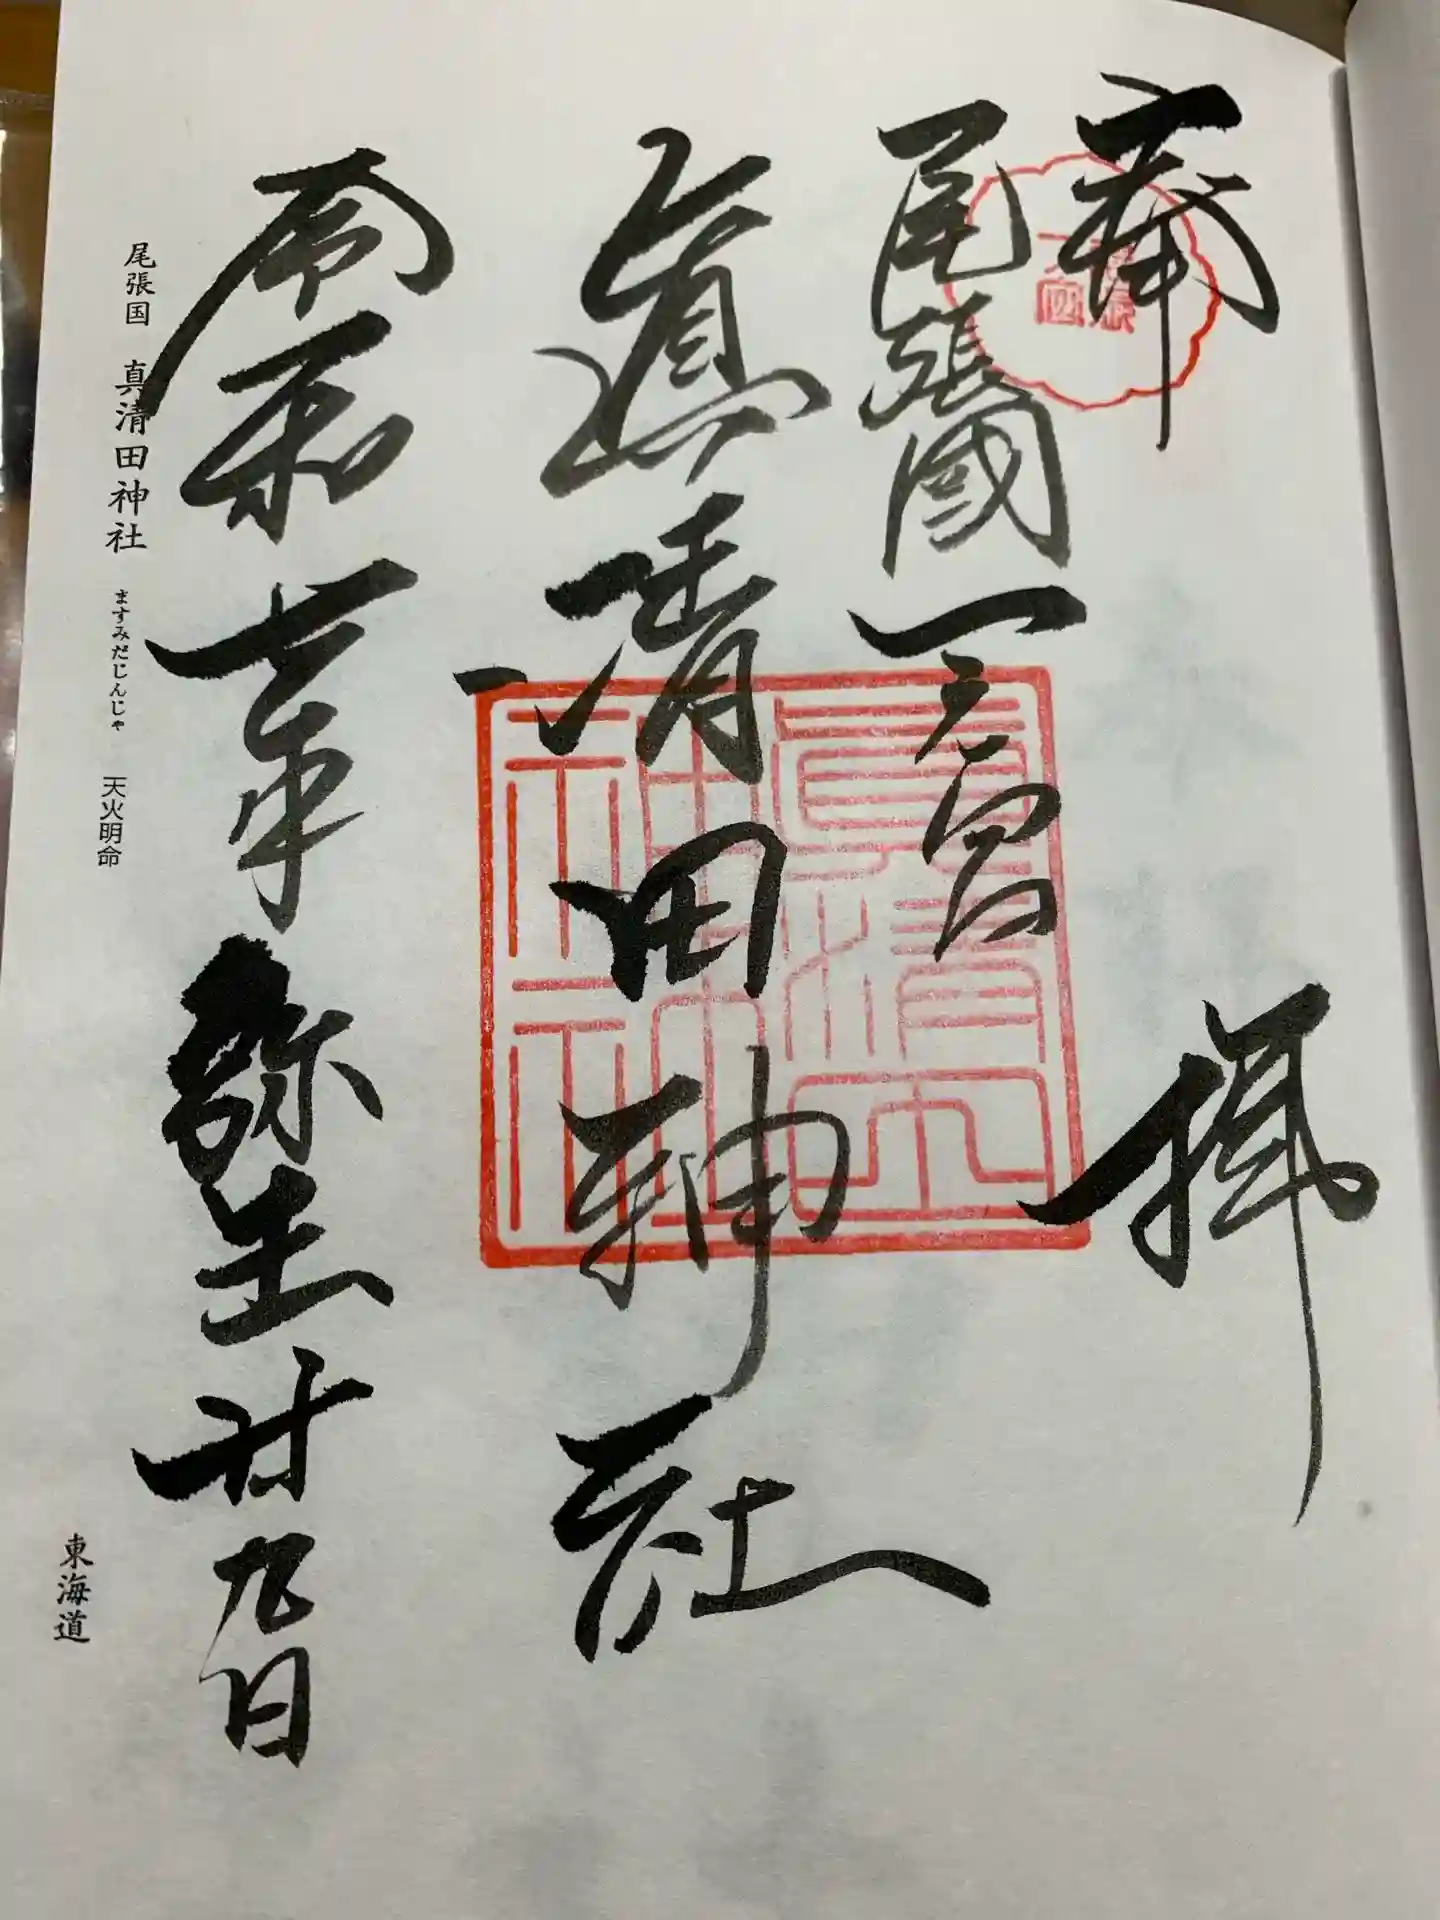 奉拝
尾張
一宮
尾張國一之宮
真清田神社
真清田
神社
令和 年弥生廿九日
尾張国 真清田神社 ますみだじんじゃ 天火明命
東海道